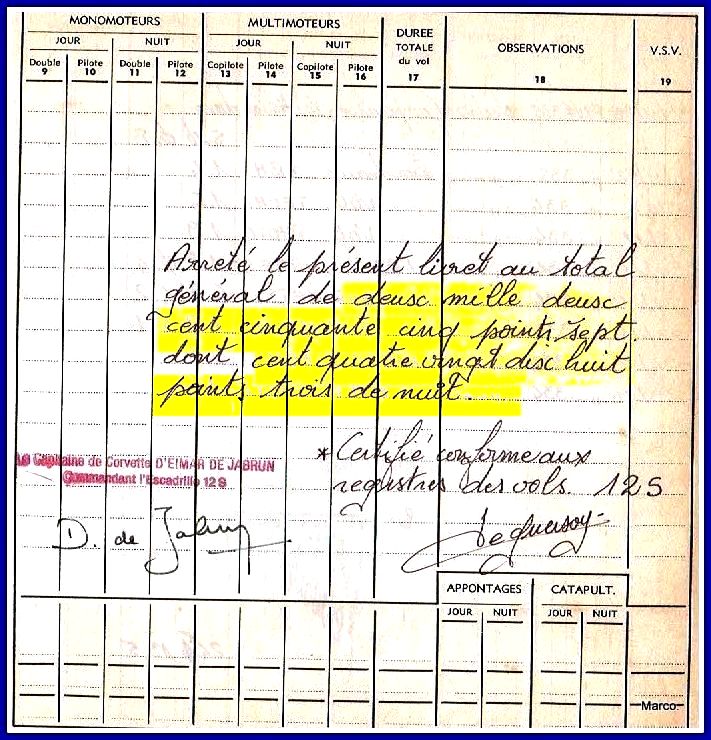 MONOMOTEURS MULTIMOTEURS DUREE TOTALE du vol OBSERVATIONS V.S.V.
JOUR NUIT JOUR NUIT
Double Pilote Double Pilote Copilote Pilote Copilote Pilote
9 10 11 12 13 14 15 16 17 18 19
Arreté le présent livret au total
général de deusc mille deusc
cent cinquante cinq points sept.
dont cent quatre vingt disc huit
points trois de nuit.
* Certifié conforme aux
registres des vols. 12S
Le Capitaine de Corvette D'EIMAR DE JABRUN
Commandant l'Escadrille 12 S
D. de Jabrun
APPONTAGES CATAPULT.
JOUR NUIT JOUR NUIT
Marco